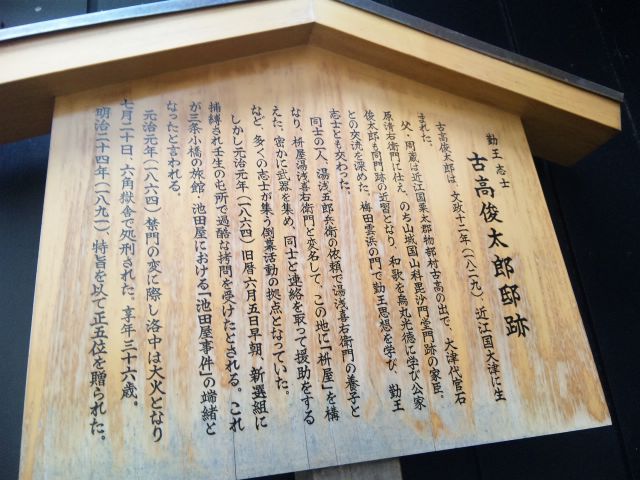 勤王志士
古高俊太郎邸跡
古高俊太郎は、文政十二年(一八二九)、近江国大津に生
まれた。
父・周蔵は近江国栗太郡物部村古高の出で、大津代官石
原清右衛門に仕え、のち山城国山科毘沙門堂門跡の家臣、
俊太郎も同門跡の近習となり、和歌を烏丸光徳に学び公家
との交流を深めた。梅田雲浜の門で勤王思想を学び、勤王
志士とも交わった。
同士の一人、湯浅五郎兵衛の依頼で湯浅喜右衛門の養子と
なり、枡屋湯浅喜右衛門と変名して、この地に「枡屋」を構
えた。密かに武器を集め、同士と連絡を取って援助をする
など、多くの志士が集う倒幕活動の拠点となっていた。
しかし元治元年(一八六四)旧暦六月五日早朝、新選組に
捕縛され壬生の屯所で過酷な拷問を受けたとされる。これ
が三条小橋の旅館、池田屋における「池田屋事件」の端緒と
なったと言われる。
元治元年(一八六四)禁門の変に際し洛中は大火となり
七月二十日、六角獄舎で処刑された。享年三十六歳。
明治二十四年(一八九一)、特旨を以て正五位を贈られた。